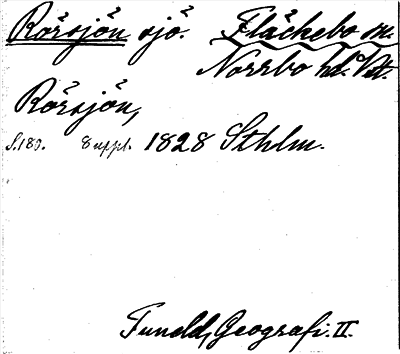 Rörsjön sjö. Fläckebo sn.
Norrbo hd. Vtl.
Rörsjön,
S. 189. 8 uppl. 1828 Sthlm.
Tuneld, Geografi. II.